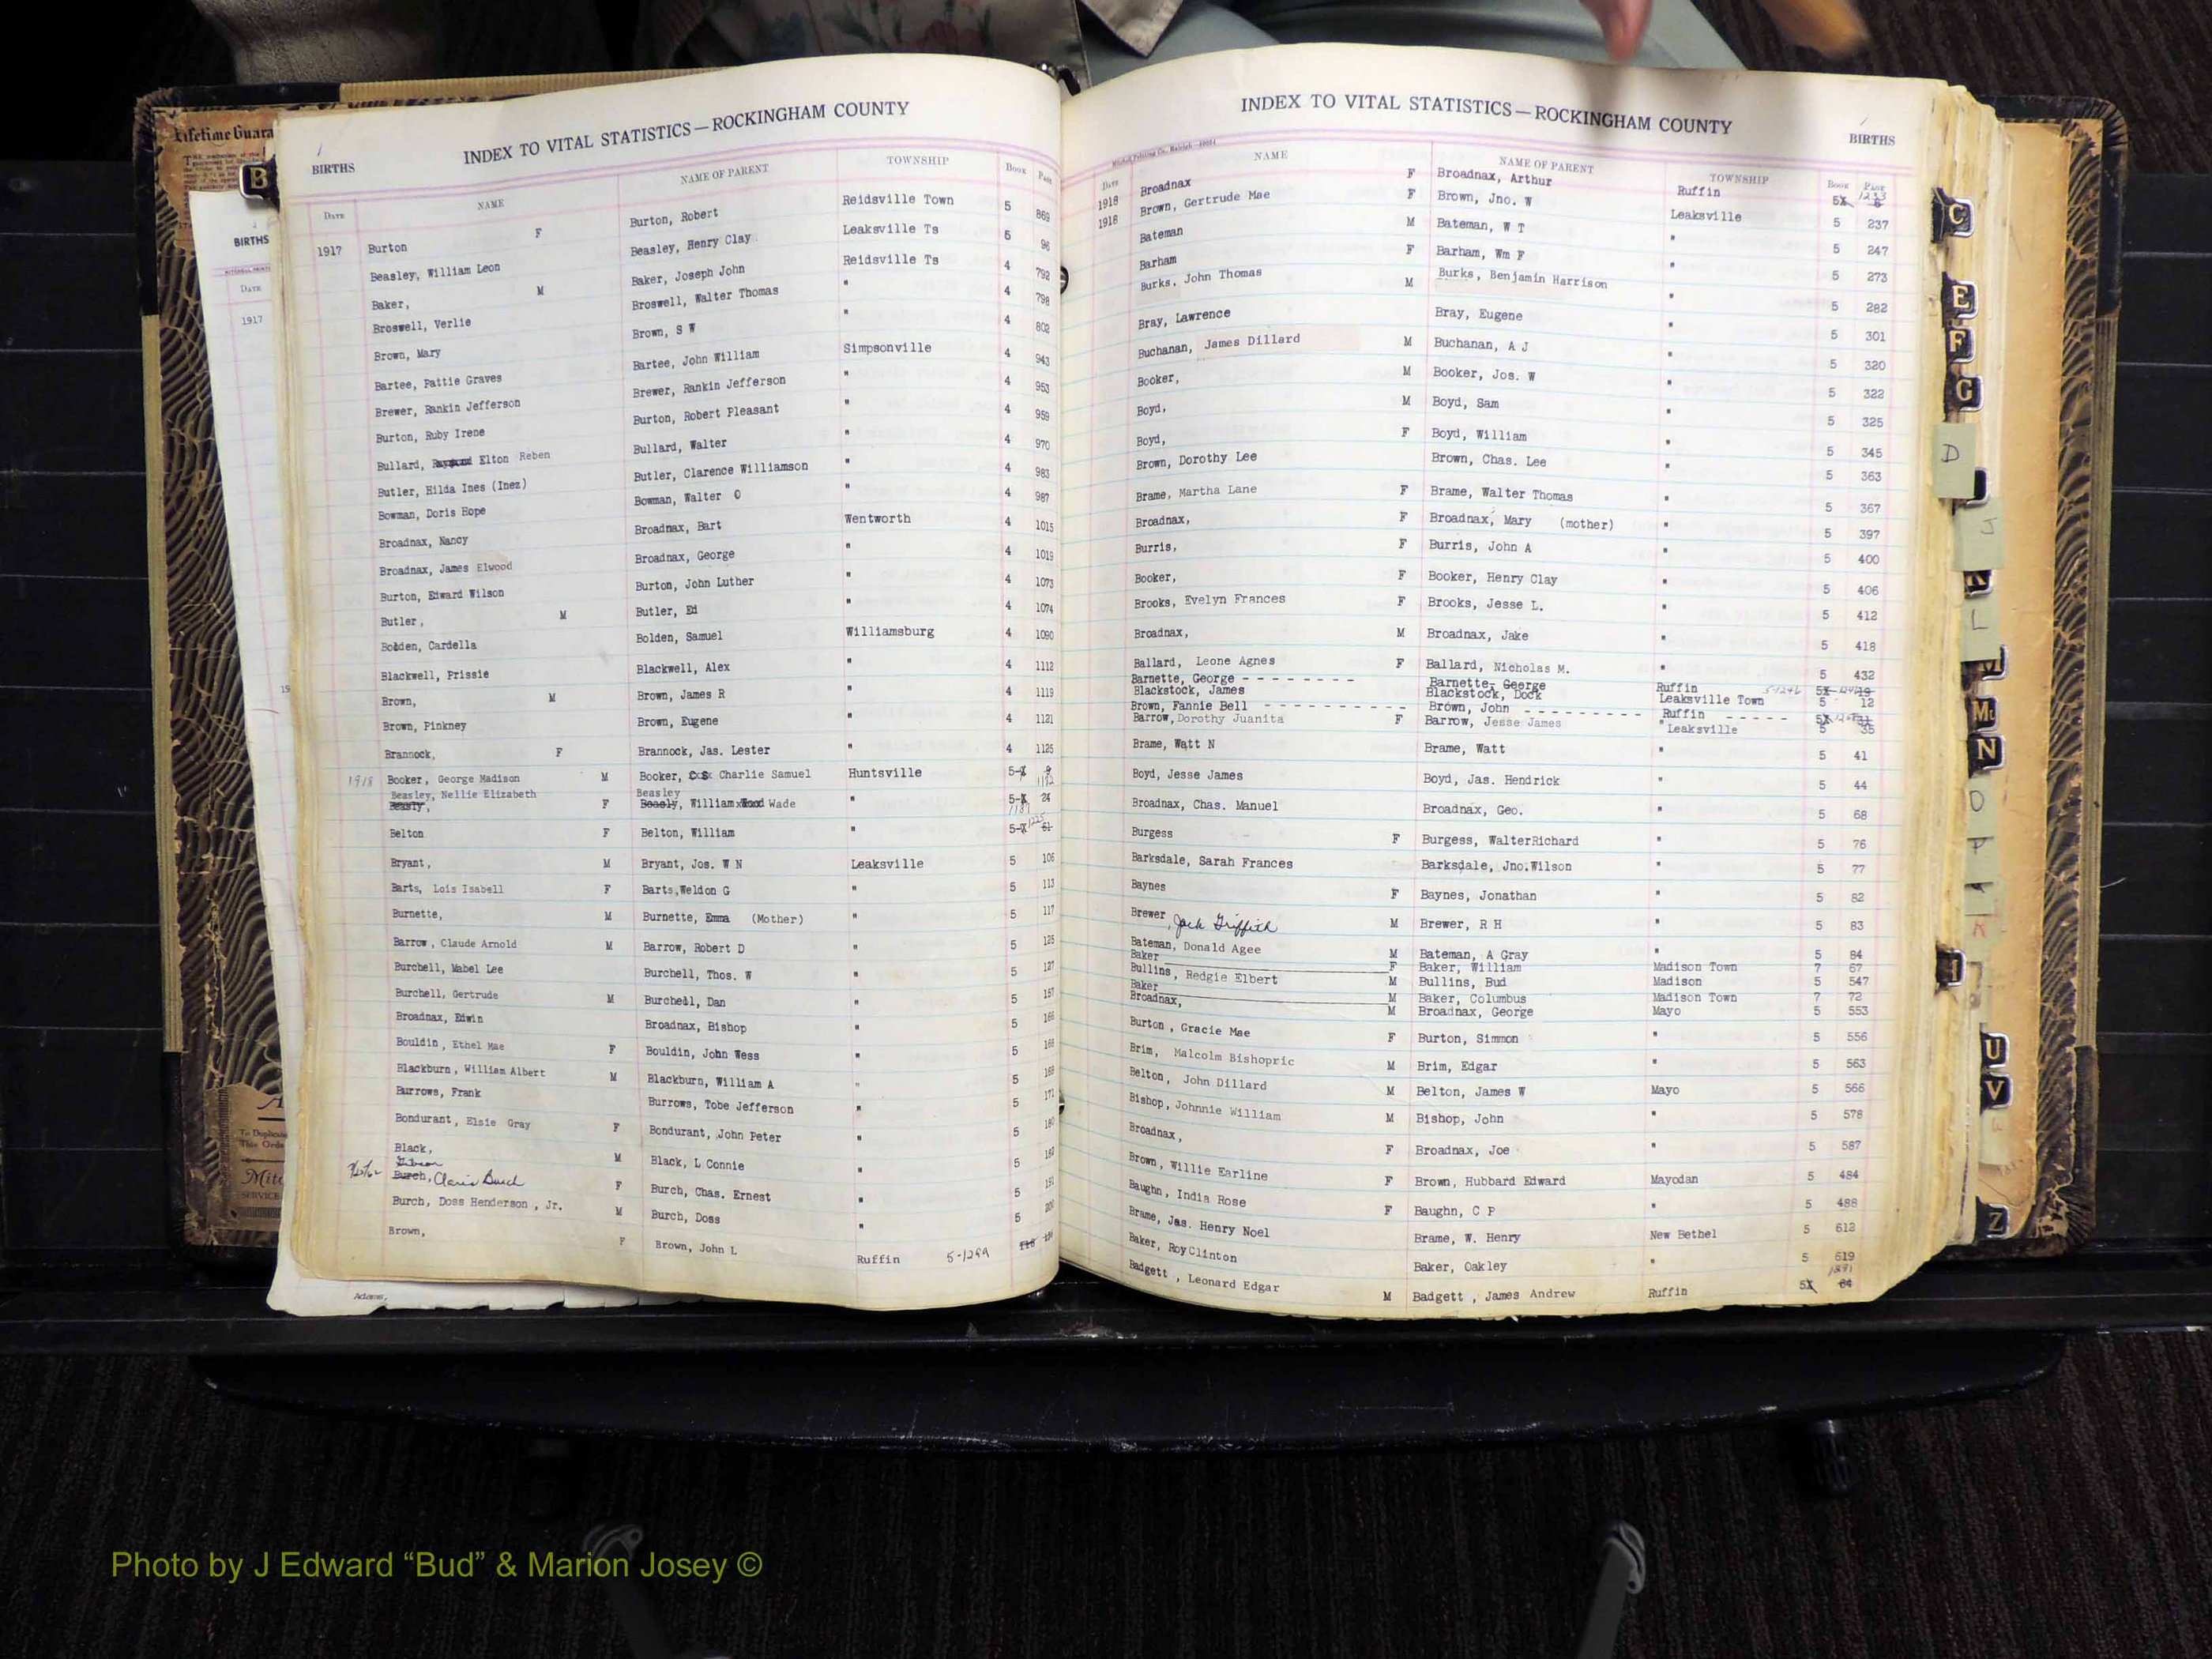 Lifetime Guara
B
BIRTHS
DATE
1917
BIRTHS INDEX TO VITAL STATISTICS—ROCKINGHAM COUNTY
DATE NAME NAME OF PARENT TOWNSHIP BOOK PAGE
1917 Burton F Burton, Robert Reidsville Town 5 869
Beasley, William Leon Beasley, Henry Clay Leaksville Ts 5 96
Baker, M Baker, Joseph John Reidsville Ts 4 792
Broswell, Verlie Broswell, Walter Thomas " 4 798
Brown, Mary Brown, S W " 4 802
Bartee, Pattie Graves Bartee, John William Simpsonville 4 943
Brewer, Rankin Jefferson Brewer, Rankin Jefferson " 4 953
Burton, Ruby Irene Burton, Robert Pleasant " 4 959
Bullard, Elton Reben Bullard, Walter " 4 970
Butler, Hilda Ines (Inez) Butler, Clarence Williamson " 4 983
Bowman, Doris Hope Bowman, Walter O " 4 987
Broadnax, Nancy Broadnax, Bart Wentworth 4 1015
Broadnax, James Elwood Broadnax, George " 4 1019
Burton, Edward Wilson Burton, John Luther " 4 1073
Butler, M Butler, Ed " 4 1074
Bolden, Cardella Bolden, Samuel Williamsburg 4 1090
Blackwell, Prissie Blackwell, Alex " 4 1112
Brown, M Brown, James R " 4 1119
Brown, Pinkney Brown, Eugene " 4 1121
Brannock, F Brannock, Jas. Lester " 4 1125
1918 Booker, George Madison M Booker, Charlie Samuel Huntsville 5-X 9 1192
Beasley, Nellie Elizabeth Beasley
Beasly, F Beasly, William Wade " 5-X 24
1187
Belton F Belton, William " 5-X 1225 61
Bryant, M Bryant, Jos. W N Leaksville 5 106
Barts, Lois Isabell F Barts,Weldon G " 5 113
Burnette, M Burnette, Emma (Mother) " 5 117
Barrow, Claude Arnold M Barrow, Robert D " 5 125
Burchell, Mabel Lee Burchell, Thos. W " 5 127
Burchell, Gertrude M Burchell, Dan " 5 157
Broadnax, Edwin Broadnax, Bishop " 5 166
Bouldin, Ethel Mae F Bouldin, John Wess " 5 168
Blackburn, William Albert M Blackburn, William A " 5 169
Burrows, Frank Burrows, Tobe Jefferson " 5 171
Bondurant, Elsie Gray F Bondurant, John Peter " 5 180
Black, M Black, L Connie " 5 182
Burch, Claris Burch F Burch, Chas. Ernest " 5 191
Burch, Doss Henderson, Jr. M Burch, Doss " 5 200
Brown, F Brown, John L Ruffin 5-1299
Adams,
INDEX TO VITAL STATISTICS—ROCKINGHAM COUNTY BIRTHS
Mitchell Printing Co., Raleigh
DATE NAME NAME OF PARENT TOWNSHIP BOOK PAGE
1918 Broadnax F Broadnax, Arthur Ruffin 5X 1233 6
1918 Brown, Gertrude Mae F Brown, Jno. W Leaksville 5 237
Bateman M Bateman, W T " 5 247
Barham F Barham, Wm F " 5 273
Burks, John Thomas M Burks, Benjamin Harrison " 5 282
Bray, Lawrence Bray, Eugene " 5 301
Buchanan, James Dillard M Buchanan, A J " 5 320
Booker, M Booker, Jos. W " 5 322
Boyd, M Boyd, Sam " 5 325
Boyd, F Boyd, William " 5 345
Brown, Dorothy Lee Brown, Chas. Lee " 5 363
Brame, Martha Lane F Brame, Walter Thomas " 5 367
Broadnax, F Broadnax, Mary (mother) " 5 397
Burris, F Burris, John A " 5 400
Booker, F Booker, Henry Clay " 5 406
Brooks, Evelyn Frances F Brooks, Jesse L. " 5 412
Broadnax, M Broadnax, Jake " 5 418
Ballard, Leone Agnes F Ballard, Nicholas M. " 5 432
Barnette, George - - - - - - - - Barnette, George Ruffin 5-1246 5X 19
Blackstock, James Blackstock, Dock Leaksville Town 5 12
Brown, Fannie Bell - - - - - - - - - - Brown, John - - - - - - - - - Ruffin - - - - - 5X
Barrow, Dorothy Juanita F Barrow, Jesse James " Leaksville 5 35
Brame, Watt N Brame, Watt " 5 41
Boyd, Jesse James Boyd, Jas. Hendrick " 5 44
Broadnax, Chas. Manuel Broadnax, Geo. " 5 68
Burgess F Burgess, WalterRichard " 5 76
Barksdale, Sarah Frances Barksdale, Jno.Wilson " 5 77
Baynes F Baynes, Jonathan " 5 82
Brewer, Jack Griffith M Brewer, R H " 5 83
Bateman, Donald Agee M Bateman, A Gray " 5 84
Baker F Baker, William Madison Town 7 67
Bullins, Redgie Elbert M Bullins, Bud Madison 5 547
Baker M Baker, Columbus Madison Town 7 72
Broadnax, M Broadnax, George Mayo 5 553
Burton, Gracie Mae F Burton, Simmon " 5 556
Brim, Malcolm Bishopric M Brim, Edgar " 5 563
Belton, John Dillard M Belton, James W Mayo 5 566
Bishop, Johnnie William M Bishop, John " 5 578
Broadnax, F Broadnax, Joe " 5 587
Brown, Willie Earline F Brown, Hubbard Edward Mayodan 5 484
Baughn, India Rose F Baughn, C P " 5 488
Brame, Jas. Henry Noel Brame, W. Henry New Bethel 5 612
Baker, RoyClinton Baker, Oakley " 5 619
Badgett, Leonard Edgar M Badgett, James Andrew Ruffin 5X 64
C
E
F
G
D
J
K
L
M
Mc
N
O
P
U
V
Z
Photo by J Edward “Bud” & Marion Josey ©